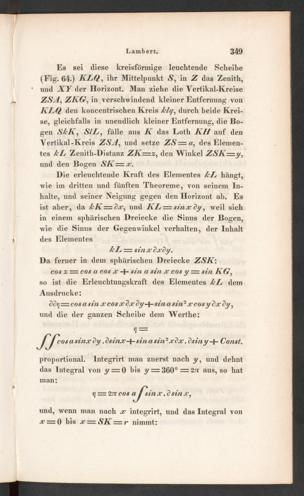 Lambert. 349
Es sei diese kreisförmige leuchtende Scheibe
(Fig. 64.) KLQ, ihr Mittelpunkt S, in Z das Zenith,
und XY der Horizont. Man ziehe die Vertikal-Kreise
ZSA, ZKG, in verschwindend kleiner Entfernung von
KLQ den concentrischen Kreis klq, durch beide Krei-
se, gleichfalls in unendlich kleiner Entfernung, die Bo-
gen SkK, SlL, fälle aus K das Loth KH auf den
Vertikal-Kreis ZSA, und setze ZS = a, des Elemen-
tes kL Zenith-Distanz ZK = z, den Winkel ZSK = y,
und den Bogen SK = x.
Die erleuchtende Kraft des Elementes kL hängt,
wie im dritten und fünften Theoreme, von seinem In-
halte, und seiner Neigung gegen den Horizont ab. Es
ist aber, da kK = ∂x, und KL = sin x ∂y, weil sich
in einem sphärischen Dreiecke die Sinus der Bogen,
wie die Sinus der Gegenwinkel verhalten, der Inhalt
des Elementes
kL = sin x ∂x ∂y.
Da ferner in dem sphärischen Dreiecke ZSK:
cos z = cos a cos x + sin a sin x cos y = sin KG,
so ist die Erleuchtungskraft des Elementes kL dem
Ausdrucke:
∂∂η = cos a sin x cos x ∂x ∂y + sin a sin² x cos y ∂x ∂y,
und die der ganzen Scheibe dem Werthe:
η =
∫∫ cos a sin x ∂y . ∂ sin x + sin a sin² x ∂x . ∂ sin y + Const.
proportional. Integrirt man zuerst nach y, und dehnt
das Integral von y = 0 bis y = 360° = 2π aus, so hat
man:
η = 2π cos a ∫ sin x . ∂ sin x,
und, wenn man nach x integrirt, und das Integral von
x = 0 bis x = SK = r nimmt: